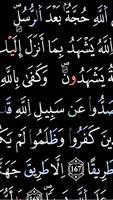 ٱللَّهِ حُجَّةُۢ بَعْدَ ٱلرُّسُلِ
ٱللَّهُ يَشْهَدُ بِمَآ أَنزَلَ إِلَيْكَ
يَشْهَدُونَ ۚ وَكَفَىٰ بِٱللَّهِ
صَدُّوا۟ عَن سَبِيلِ ٱللَّهِ
كَفَرُوا۟ وَظَلَمُوا۟ لَمْ يَكُنِ
طَرِيقًا ١٦٨ إِلَّا طَرِيقَ